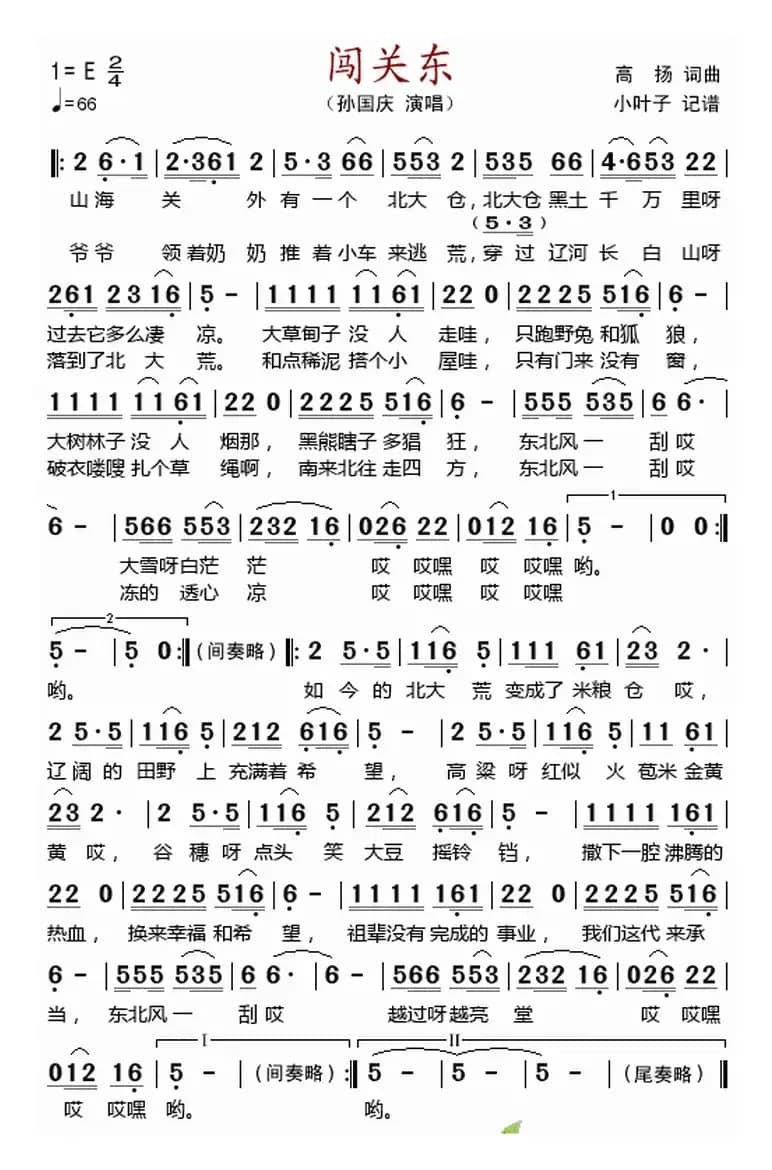 闯关东
1= E 2/4
♩=66
（孙国庆 演唱）
高 扬 词曲
小叶子 记谱
‖: 2 6·1 | 2·361 2 | 5·3 66 | 553 2 | 535 66 | 4·653 22 |
山海 关 外有一个 北大 仓，北大仓黑土 千 万 里呀
（5·3）
爷爷 领着奶 奶推着小车 来逃 荒，穿过 辽河 长 白 山呀
261 2316 | 5 - | 1111 1161 | 22 0 | 2225 516 | 6 - |
过去它多么凄 凉。 大草甸子 没 人 走哇， 只跑野兔 和狐 狼，
落到了北 大 荒。 和点稀泥 搭个小 屋哇， 只有门来 没有 窗，
1111 1161 | 22 0 | 2225 516 | 6 - | 555 535 | 6 6· |
大树林子 没 人 烟那， 黑熊瞎子 多猖 狂， 东北风一 刮哎
破衣喽嗖 扎个草 绳啊， 南来北往 走四 方， 东北风一 刮哎
6 - | 566 553 | 232 16 | 026 22 | 012 16 | 1 5 - | 0 0 :‖
大雪呀白茫 茫 哎 哎嘿 哎 哎嘿 哟。
冻的 透心 凉 哎 哎嘿 哎 哎嘿
2 5 - | 5 0 :‖（间奏略）‖: 2 5·5 | 116 5 | 111 61 | 23 2· |
哟。 如 今的 北大 荒 变成了 米粮 仓 哎，
2 5·5 | 116 5 | 212 616 | 5 - | 2 5·5 | 116 5 | 11 61 |
辽 阔的 田野 上 充满着 希 望， 高 粱呀 红似 火 苞米 金黄
23 2· | 2 5·5 | 116 5 | 212 616 | 5 - | 1111 161 |
黄 哎， 谷 穗呀 点头 笑 大豆 摇铃 铛， 撒下一腔 沸腾的
22 0 | 2225 516 | 6 - | 1111 161 | 22 0 | 2225 516 |
热血， 换来幸福 和希 望， 祖辈没有 完成的 事业， 我们这代 来承
6 - | 555 535 | 6 6· | 6 - | 566 553 | 232 16 | 026 22 |
当， 东北风一 刮哎 越过呀越亮 堂 哎 哎嘿
012 16 | I 5 - | （间奏略） :‖ II 5 - | 5 - | 5 - | （尾奏略）‖
哎 哎嘿 哟。 哟。